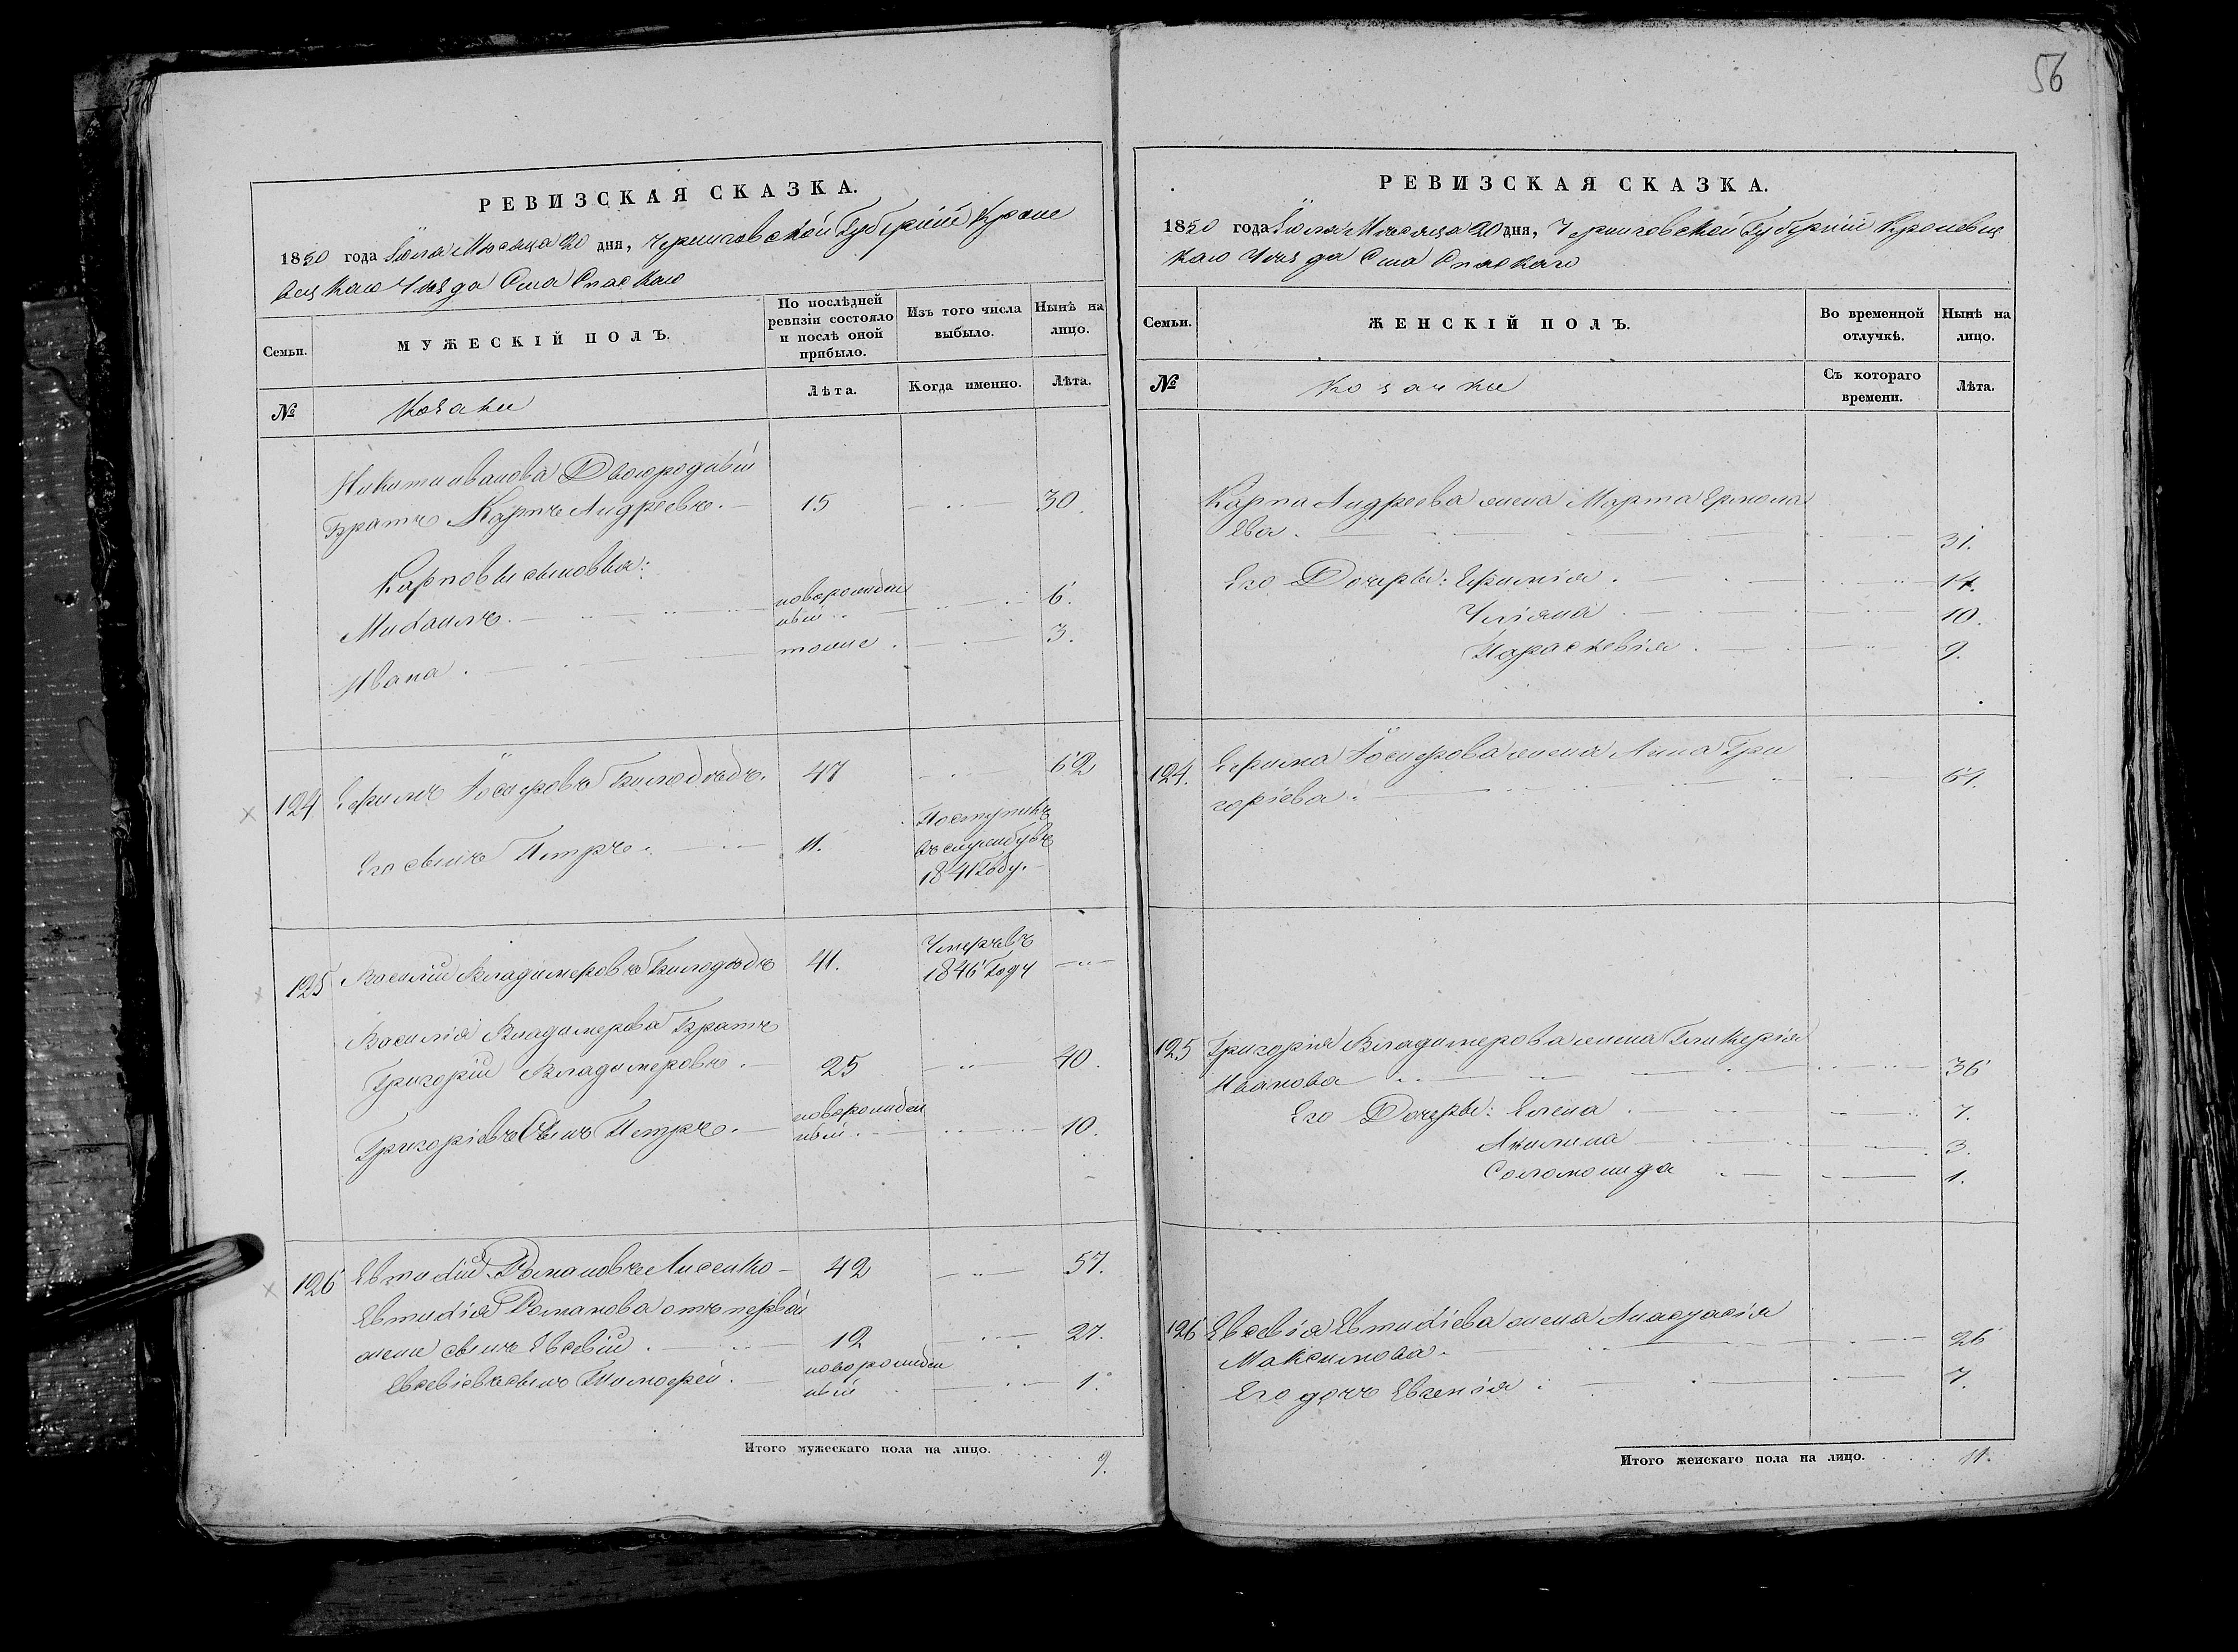 56
РЕВИЗСКАЯ СКАЗКА.
1850 года Іюля Мѣсяца 20 дня, Черниговской Губерніи Кроле
вецкаго Уѣзда Села Спаскаго
Семьи.
МУЖЕСКІЙ ПОЛЪ.
По послѣдней
ревизіи состояло
и послѣ оной
прибыло.
Изъ того числа
выбыло.
Нынѣ на
лицо.
№
Козаки
Лѣта.
Когда именно.
Лѣта.
Никиты Иванова Двоюродный
Братъ Карпъ Андреевъ. 15 30.
Карповы сыновья:
Михаилъ. новорожден
ный 6.
Ивана. тоже. 3.
124 Ефимъ Іосифовъ 47 62
Его сынъ Петръ. 11. Поступилъ
въ службу въ
1841 году.
125 Василий Владимеровъ 41. Умеръ въ
1846 Году
Василія Владимерова Братъ
Григорий Владимеровъ. 25 40.
Григоріевъ Сынъ Петръ. новорожден
ный. 10.
126 Евтихій Романовъ Лисенко 42 57.
Евтихія Романова отъ первой
жены сынъ Евсевій. 12 27.
Евсевіевъ сынъ Тимофей. новорожден
ный 1.
Итого мужескаго пола на лицо. 9.
РЕВИЗСКАЯ СКАЗКА.
1850 года Іюля Мѣсяца 20 дня, Черниговской Губерніи Кролевец
каго Уѣзда Села Спаскаго
Семьи.
ЖЕНСКІЙ ПОЛЪ.
Во временной
отлучкѣ.
Нынѣ на
лицо.
№
Козачки
Съ котораго
времени.
Лѣта.
Карпа Андреева жена Марта Ермола
ева. 31.
Его Дочеры: Ефимія. 14.
Уліяна 10.
Параскевія. 9.
124. Ефима Іосифова жена Анна Гри
горіева. 61.
125 Григорія Владимерова жена Гликерія
Иванова 36
Его Дочеры: Елена. 7.
Акилина 3.
Соломонида 1.
126 Евсевія Евтихіева жена Анастасія
Максимова. 26
Его дочь Евгенія. 7.
Итого женскаго пола на лицо. 11.